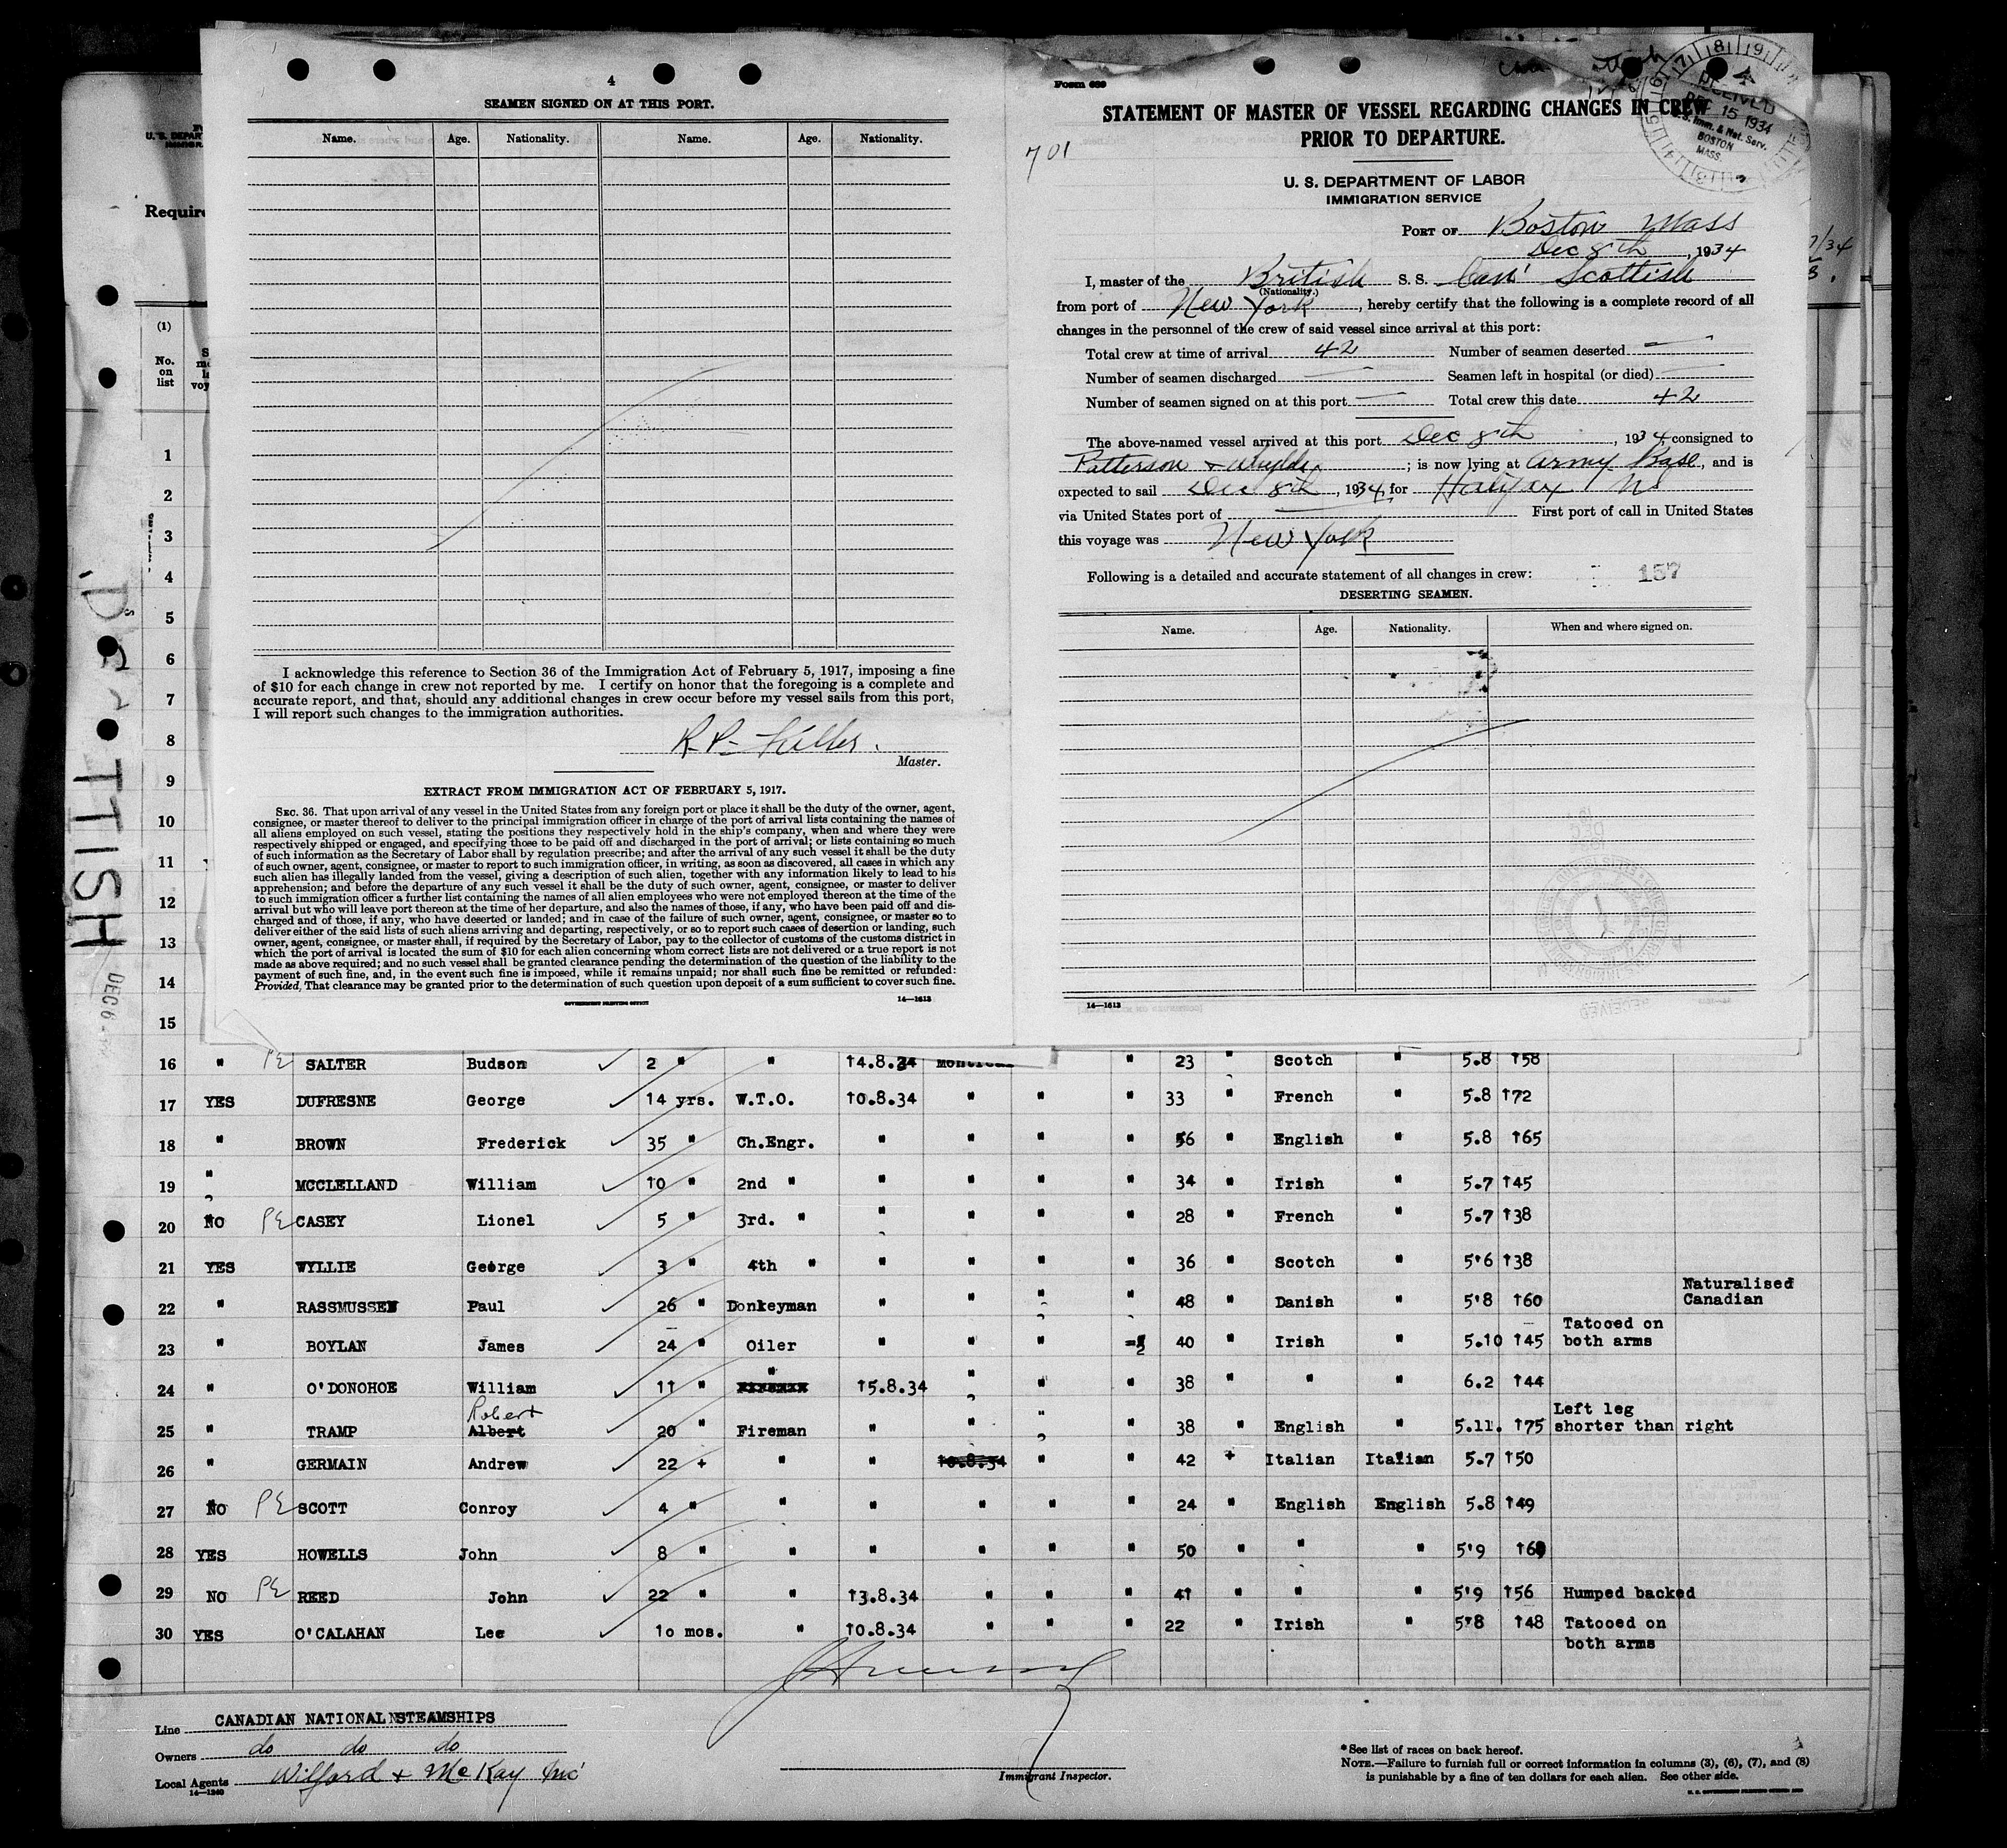 4
SEAMEN SIGNED ON AT THIS PORT.
Name. Age. Nationality. Name. Age. Nationality.
I acknowledge this reference to Section 36 of the Immigration Act of February 5, 1917, imposing a fine
of $10 for each change in crew not reported by me. I certify on honor that the foregoing is a complete and
accurate report, and that, should any additional changes in crew occur before my vessel sails from this port,
I will report such changes to the immigration authorities.
R. P.
Master.
EXTRACT FROM IMMIGRATION ACT OF FEBRUARY 5, 1917.
SEC. 36. That upon arrival of any vessel in the United States from any foreign port or place it shall be the duty of the owner, agent,
consignee, or master thereof to deliver to the principal immigration officer in charge of the port of arrival lists containing the names of
all aliens employed on such vessel, stating the positions they respectively hold in the ship's company, when and where they were
respectively shipped or engaged, and specifying those to be paid off and discharged in the port of arrival; or lists containing so much
of such information as the Secretary of Labor shall by regulation prescribe; and after the arrival of any such vessel it shall be the duty
of such owner, agent, consignee, or master to report to such immigration officer, in writing, as soon as discovered, all cases in which any
such alien has illegally landed from the vessel, giving a description of such alien, together with any information likely to lead to his
apprehension; and before the departure of any such vessel it shall be the duty of such owner, agent, consignee, or master to deliver
to such immigration officer a further list containing the names of all alien employees who were not employed thereon at the time of the
arrival but who will leave port thereon at the time of her departure, and also the names of those, if any, who have been paid off and dis-
charged and of those, if any, who have deserted or landed; and in case of the failure of such owner, agent, consignee, or master so to
deliver either of the said lists of such aliens arriving and departing, respectively, or so to report such cases of desertion or landing, such
owner, agent, consignee, or master shall, if required by the Secretary of Labor, pay to the collector of customs of the customs district in
which the port of arrival is located the sum of $10 for each alien concerning whom correct lists are not delivered or a true report is not
made as above required; and no such vessel shall be granted clearance pending the determination of the question of the liability to the
payment of such fine, and, in the event such fine is imposed, while it remains unpaid; nor shall such fine be remitted or refunded:
Provided, That clearance may be granted prior to the determination of such question upon deposit of a sum sufficient to cover such fine.
GOVERNMENT PRINTING OFFICE 14—1613
Form 689
STATEMENT OF MASTER OF VESSEL REGARDING CHANGES IN CREW
PRIOR TO DEPARTURE.
701
RECEIVED
DEC 15 1934
U.S. Imm. & Nat. Serv.
BOSTON
MASS.
U. S. DEPARTMENT OF LABOR
IMMIGRATION SERVICE
PORT OF Boston Mass
Dec 8th, 1934
I, master of the British S. S. Can' Scottish
(Nationality.)
from port of New York, hereby certify that the following is a complete record of all
changes in the personnel of the crew of said vessel since arrival at this port:
Total crew at time of arrival 42 Number of seamen deserted —
Number of seamen discharged — Seamen left in hospital (or died) —
Number of seamen signed on at this port — Total crew this date 42
The above-named vessel arrived at this port Dec 8th, 1934, consigned to
Patterson + Whylde; is now lying at Army Base, and is
expected to sail Dec 8th, 1934, for Halifax NS
via United States port of — First port of call in United States
this voyage was New York
Following is a detailed and accurate statement of all changes in crew: 157
DESERTING SEAMEN.
Name. Age. Nationality. When and where signed on.
14—1613
Require
(1)
No.
on
list
TTISH
DEC 6
1
2
3
4
5
6
7
8
9
10
11
12
13
14
15
16 " PE SALTER Budson 2 " " 14.8.34 Montreal " 23 " Scotch " 5.8 158
17 YES DUFRESNE George 14 yrs. W.T.O. 10.8.34 " " " 33 " French " 5.8 172
18 " BROWN Frederick 35 " Ch.Engr. " " " " 56 " English " 5.8 165
19 " MCCLELLAND William 10 " 2nd " " " " " 34 " Irish " 5.7 145
20 NO PE CASEY Lionel 5 " 3rd. " " " " " 28 " French " 5.7 138
21 YES WYLLIE George 3 " 4th " " " " " 36 " Scotch " 5'6 138
22 " RASSMUSSEN Paul 26 " Donkeyman " " " " 48 " Danish " 5'8 160 Naturalised Canadian
23 " BOYLAN James 24 " Oiler " " " 40 " Irish " 5.10 145 Tatooed on both arms
24 " O'DONOHOE William 11 " " 15.8.34 " " " 38 " " " 6.2 144
25 " TRAMP Robert Albert 20 " Fireman " " " " 38 " English " 5.11. 175 Left leg shorter than right
26 " GERMAIN Andrew 22 + " " 10.8.34 " " 42 + Italian Italian 5.7 150
27 NO PE SCOTT Conroy 4 " " " " " " 24 " English English 5.8 149
28 YES HOWELLS John 8 " " " " " " 50 " " " 5'9
29 NO PE REED John 22 " " 13.8.34 " " " 41 " " " 5'9 156 Humped backed
30 YES O'CALAHAN Lee 10 mos. " 10.8.34 " " " 22 " Irish " 5'8 148 Tatooed on both arms
Line CANADIAN NATIONAL STEAMSHIPS
Owners do do do
Local Agents Wilford + McKay Inc'
14—1240
Immigrant Inspector.
*See list of races on back hereof.
NOTE.—Failure to furnish full or correct information in columns (3), (6), (7), and (8)
is punishable by a fine of ten dollars for each alien. See other side.